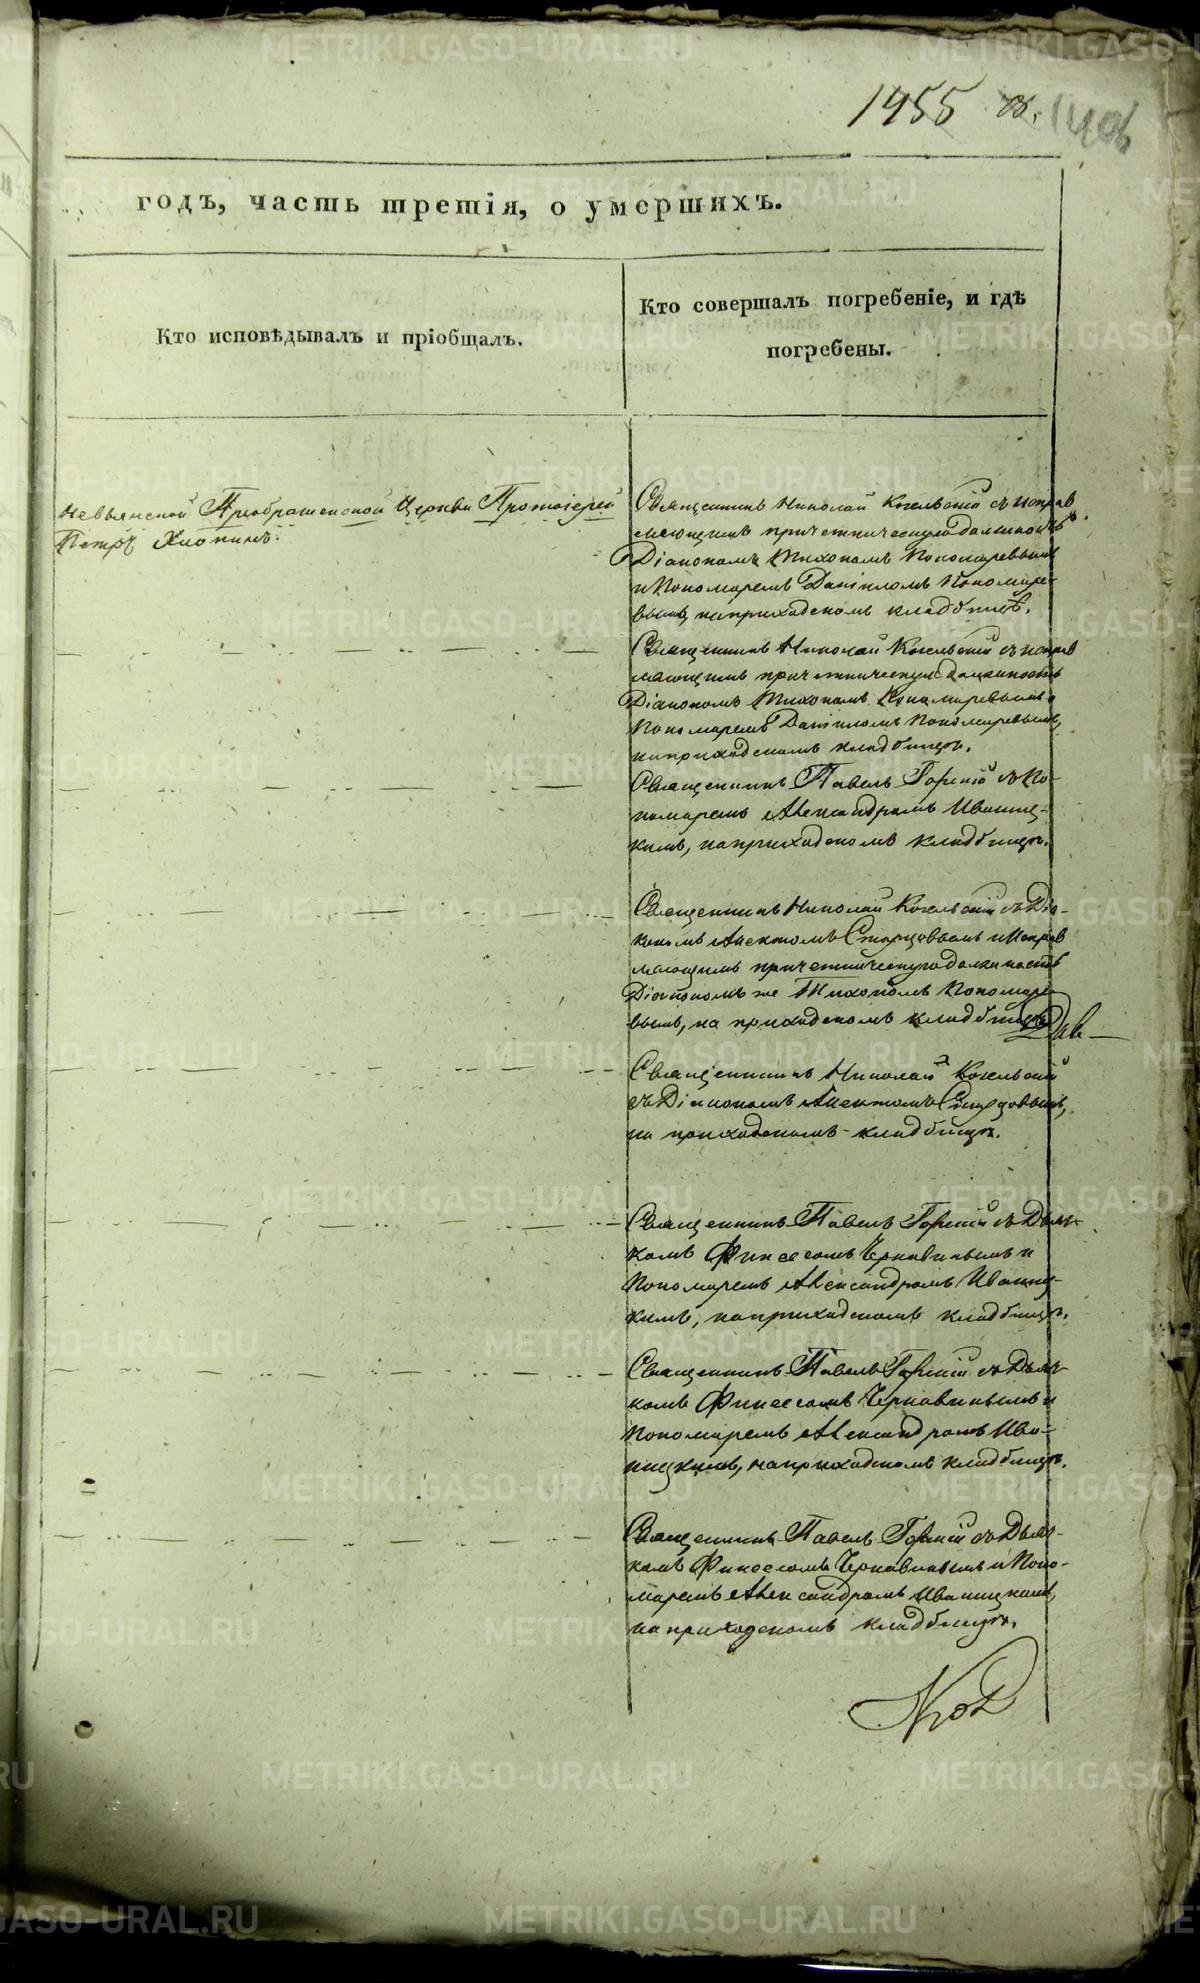 1455 об.
годъ, часть третія, о умершихъ.
Кто исповѣдывалъ и пріобщалъ.
Кто совершалъ погребеніе, и гдѣ
погребены.
Невьянской Преображенской Церкви Протоіерей
Петръ Хлопинъ.
Священникъ Николай Кокельскій съ исправ
ляющимъ причетническую должность
Діакономъ Тихономъ Пономаревымъ
и Пономаремъ Даніиломъ Пономаре-
вымъ, на приходскомъ кладбищѣ.
Священникъ Николай Кокельскій съ исправ
ляющимъ причетническую должность
Діакономъ Тихономъ Пономаревымъ и
Пономаремъ Даніиломъ Пономаревымъ,
на приходскомъ кладбищѣ.
Священникъ Павелъ Горскій съ По-
номаремъ Александромъ Иваниц-
кимъ, на приходскомъ кладбищѣ.
Священникъ Николай Кокельскій съ Діа-
кономъ Алектомъ и исправ
ляющимъ причетническую должность
Діакономъ же Тихономъ Пономаре-
вымъ, на приходскомъ кладбищѣ.
Священникъ Николай Кокельскій
съ Діакономъ
на приходскомъ кладбищѣ.
Священникъ Павелъ Горскій съ Дьяч-
комъ Финеесомъ Чернавинымъ и
Пономаремъ Александромъ Иваниц-
кимъ, на приходскомъ кладбищѣ.
Священникъ Павелъ Горскій съ Дьяч-
комъ Финеесомъ Чернавинымъ и
Пономаремъ Александромъ Ива-
ницкимъ, на приходскомъ кладбищѣ.
Священникъ Павелъ Горскій съ Дьяч-
комъ Финеесомъ Чернавинымъ и Поно-
маремъ Александромъ Иваницкимъ,
на приходскомъ кладбищѣ.
METRIKI.GASO-URAL.RU